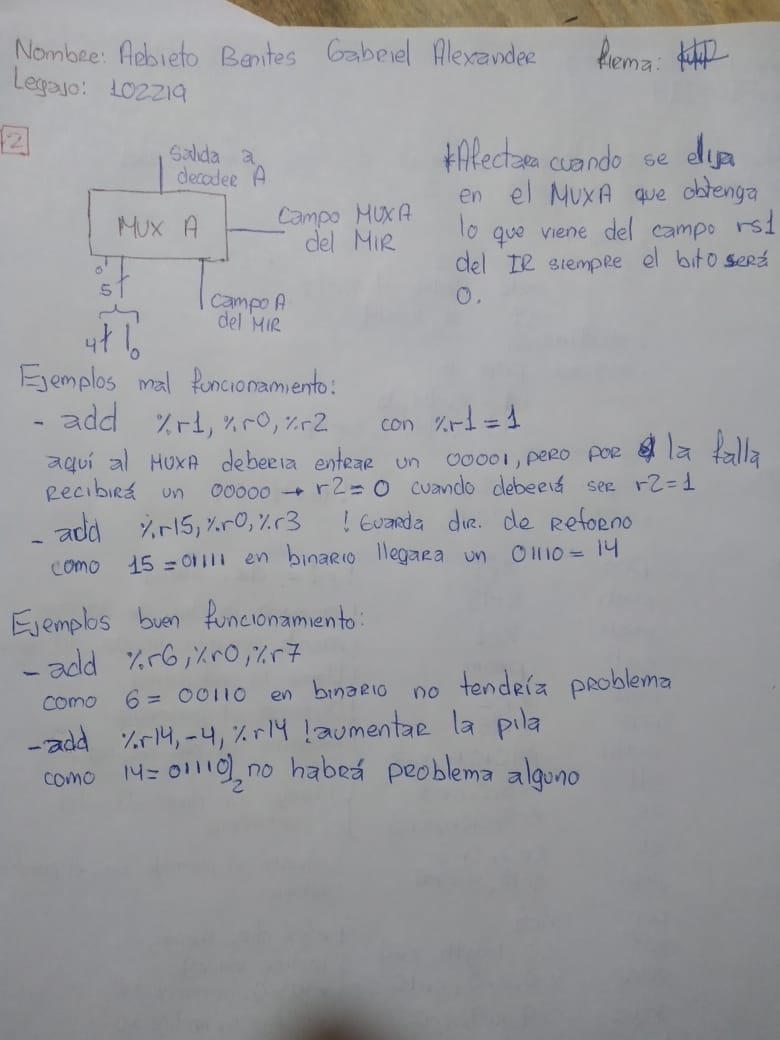 Nombre: Arbieto Benites Gabriel Alexander firma:
Legajo: 102219
2
Salida a
decoder A
MUX A
Campo MUXA
del MIR
0
5
Campo A
del MIR
4 0
*Afectara cuando se elija
en el MUXA que obtenga
lo que viene del campo rs1
del IR siempre el bit0 será
0.
Ejemplos mal funcionamiento:
- add %r1, %r0, %r2 con %r1 = 1
aquí al MUXA deberia entrar un 00001, pero por la falla
recibirá un 00000 → r2=0 cuando deberiá ser r2=1
- add %r15, %r0, %r3 ! Guarda dir. de Retorno
como 15 = 01111 en binario llegara un 01110 = 14
Ejemplos buen funcionamiento:
- add %r6, %r0, %r7
como 6 = 00110 en binario no tendría problema
- add %r14, -4, %r14 !aumentar la pila
como 14 = 01110)2 no habrá problema alguno